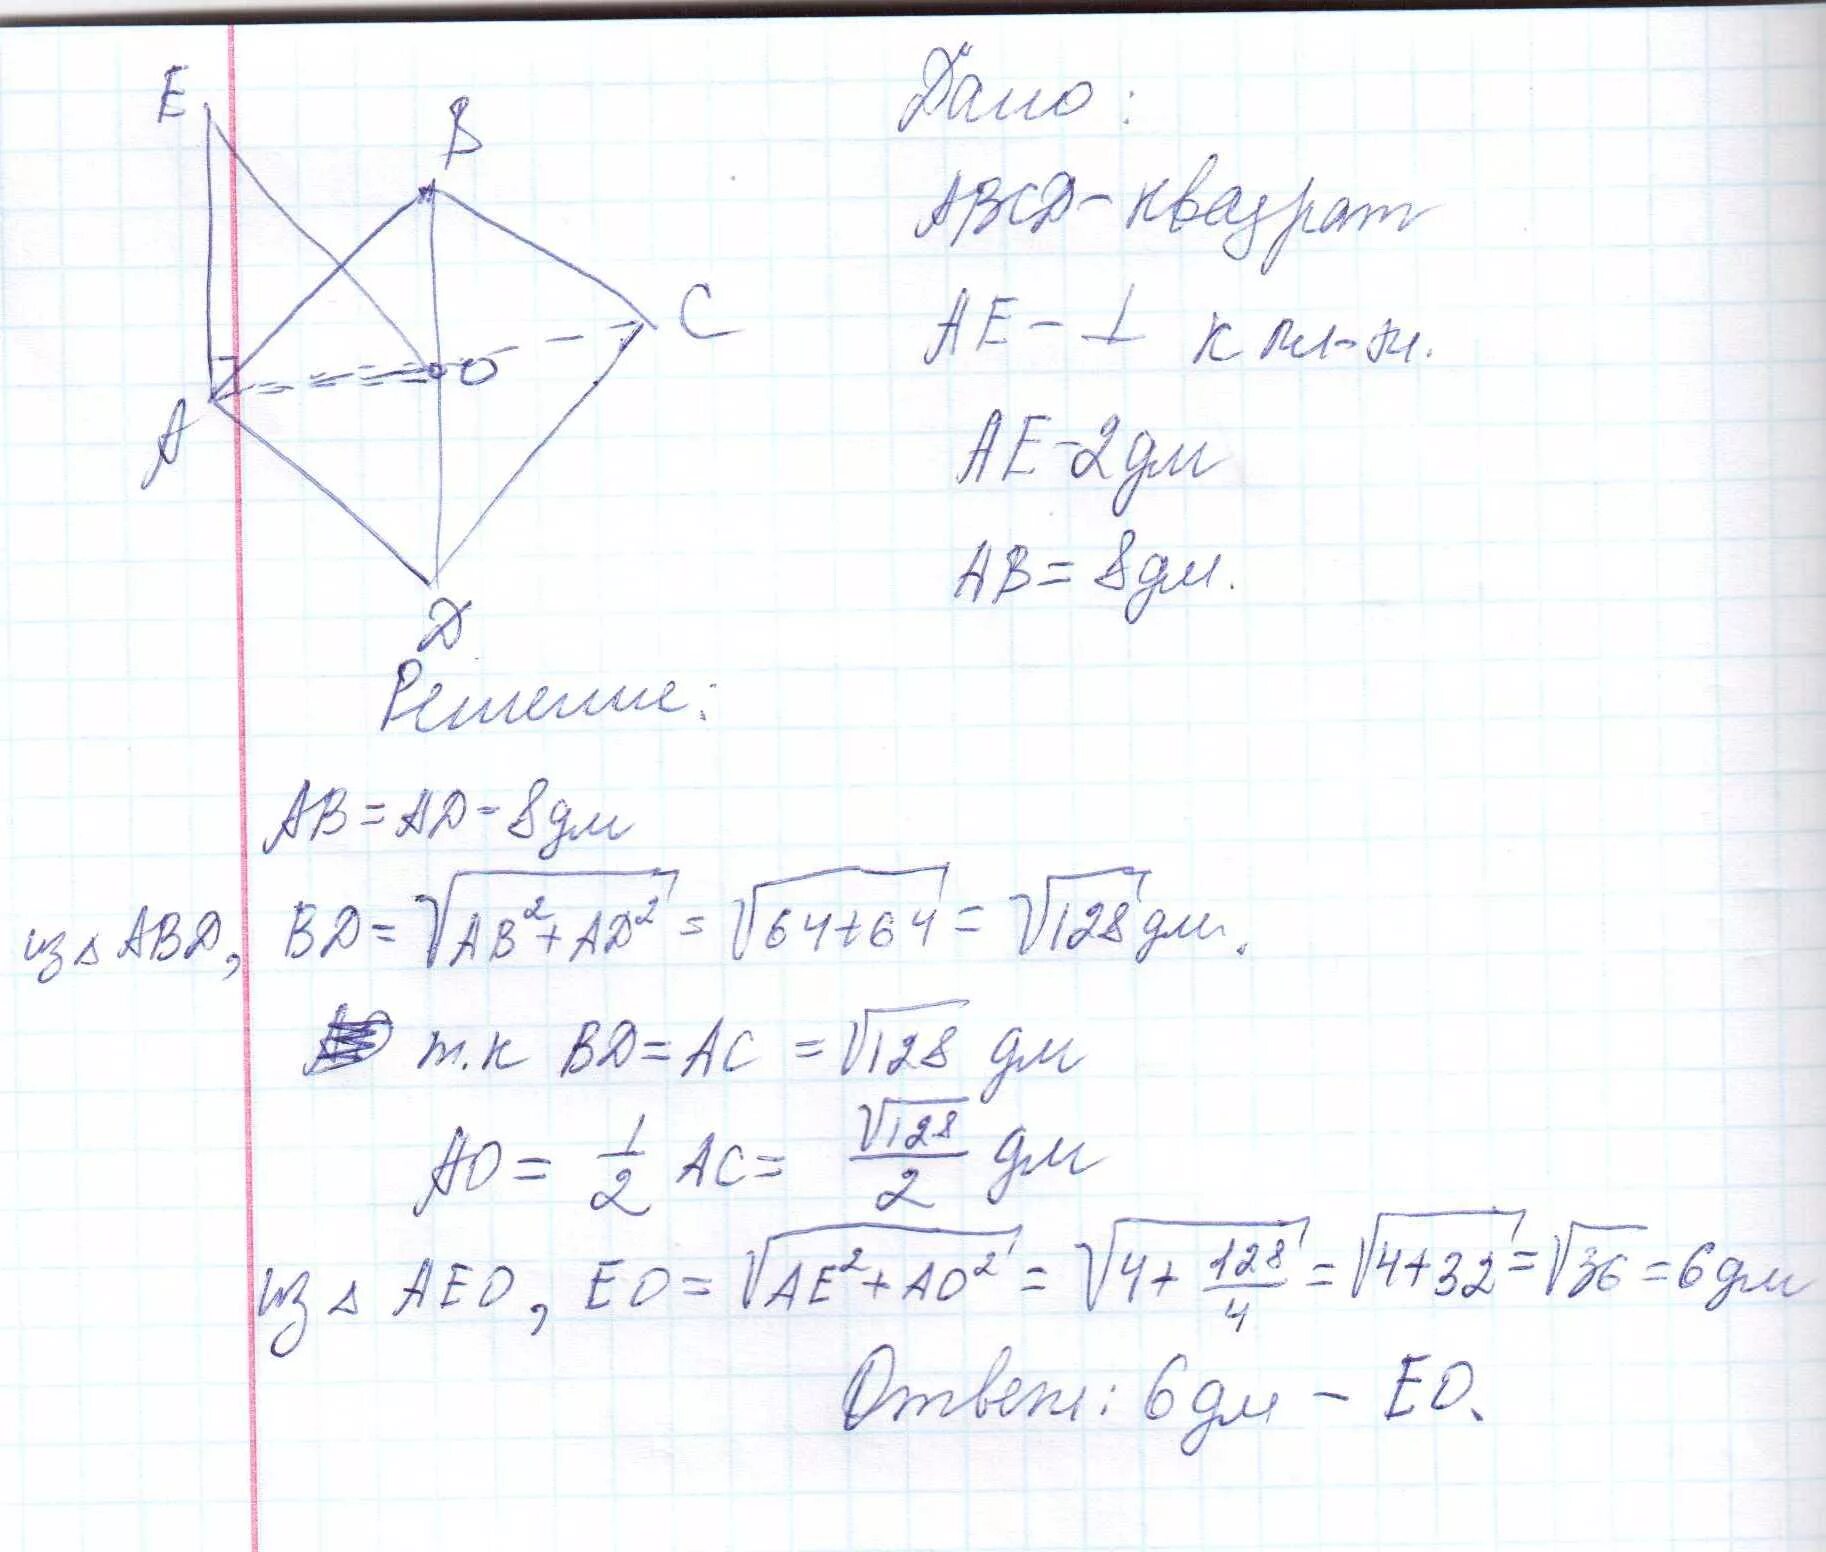 E
B
C
O
A
D
Дано:
ABCD - квадрат
AE - ⊥ к пл-ти.
AE - 2 дм
AB = 8 дм.
Решение:
AB = AD - 8 дм
из △ ABD, BD = √(AB² + AD²) = √(64+64) = √128 дм.
т.к BD = AC = √128 дм
AO = 1/2 AC = √128/2 дм
из △ AEO, EO = √(AE² + AO²) = √(4 + 128/4) = √(4+32) = √36 = 6 дм
Ответ: 6 дм - EO.